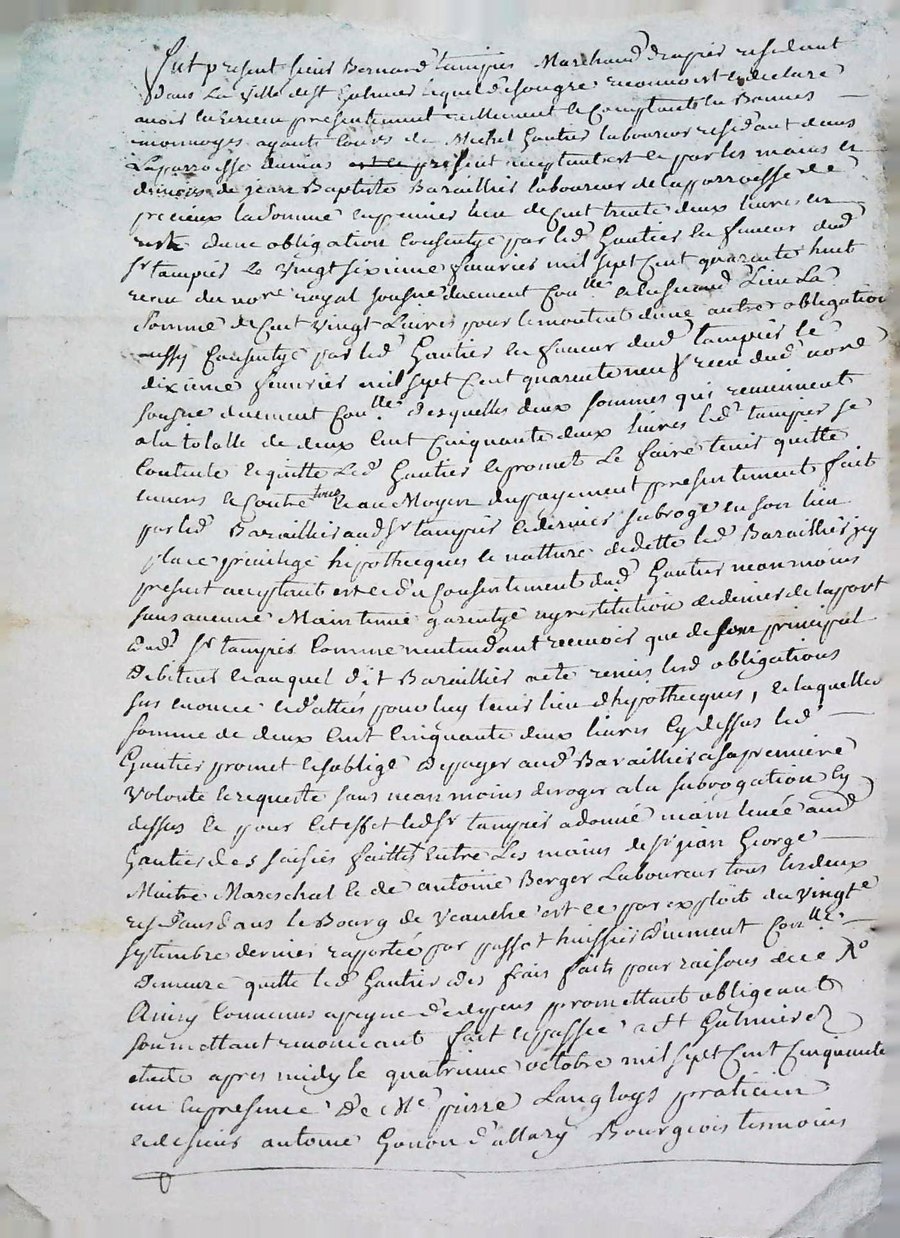 Fut present sieur Bernard Tampier Marchand drapier residant
dans La ville de st Galmier lequel de son gre reconnoist et declare
avoir eu et receu presentement reellement et Comptant en Bonnes
monnoyes ayants cours de Michel Gautier laboureur residant dans
La parroisse present acceptant et ce par les mains et
deniers de jean Baptiste Baraillier laboureur de la parroisse de
precieux la Somme en premier lieu de Cent trente deux livres en
reste d'une obligation Consentye par led Gautier en faveur dud
sr tampier le vingt sixieme fevrier mil sept Cent quarante huit
receue du nore royal sousne duement Conlle et en segond Lieu La
Somme de Cent vingt Livres pour le montent d'une autre obligation
aussy Consentye par led Gautier en faveur dud tampier le
dixieme fevrier mil sept Cent quarante neuf receu dud nore
sousne duement Conlle desquelles deux sommes qui reviennent
a la totalle de deux Cent Cinquante deux livres led tampier se
Contente et quitte Led Gautier et promet Le faire tenir quitte
envers et Contre tous et au Moyen du payement presentement fait
par led Baraillier aud sr tampier ce dernier subroge en son lieu
place privilege hipothecques et natture de dette led Baraillier icy
present acceptant et ce du Consentement dud Gautier nean moins
sans aucune Maintenue garentye ny restitution de denier de la part
dud sr tampier Comme n'entendant recevoir que de son principal
Debiteur et auquel dit Baraillier a ete remis lesd obligations
sus enoncé pour luy tenir lieu d'hypothecques, et laquelle
somme de deux Cent Cinquante deux livres Cy dessus led
Gautier promet et s'oblige de payer aud Baraillier a sa premiere
volonte et requeste sans nean moins deroger a la subrogation Cy
dessus et pour Cet effet led sr tampier a donné main levée aud
Gautier des saisies faittes Entre Les mains de sr jean George
Maitre Mareschal et de antoine Berger Laboureur tous les deux
residans dans le Bourg de Veauche et ce par exploit du vingte
septembre dernier rapportée par passot huissier duement Conlle
Demeure quitte led Gautier des frais faits pour raisons de ce
Ainsy Convenus a peyne de depens promettant obligeant
soumettant renoncant fait et passée a st Galmier
etude apres midy le quatrieme octobre mil sept Cent Cinquante
un en presence de Me pierre Langloys praticien
et de sieur antoine Gonon d'allary Bourgeois temoins